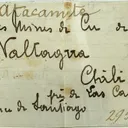 Atacamite
les Mines de Cu de
Nallagua
Chili
pr. de Las Ca
de Santiago
29